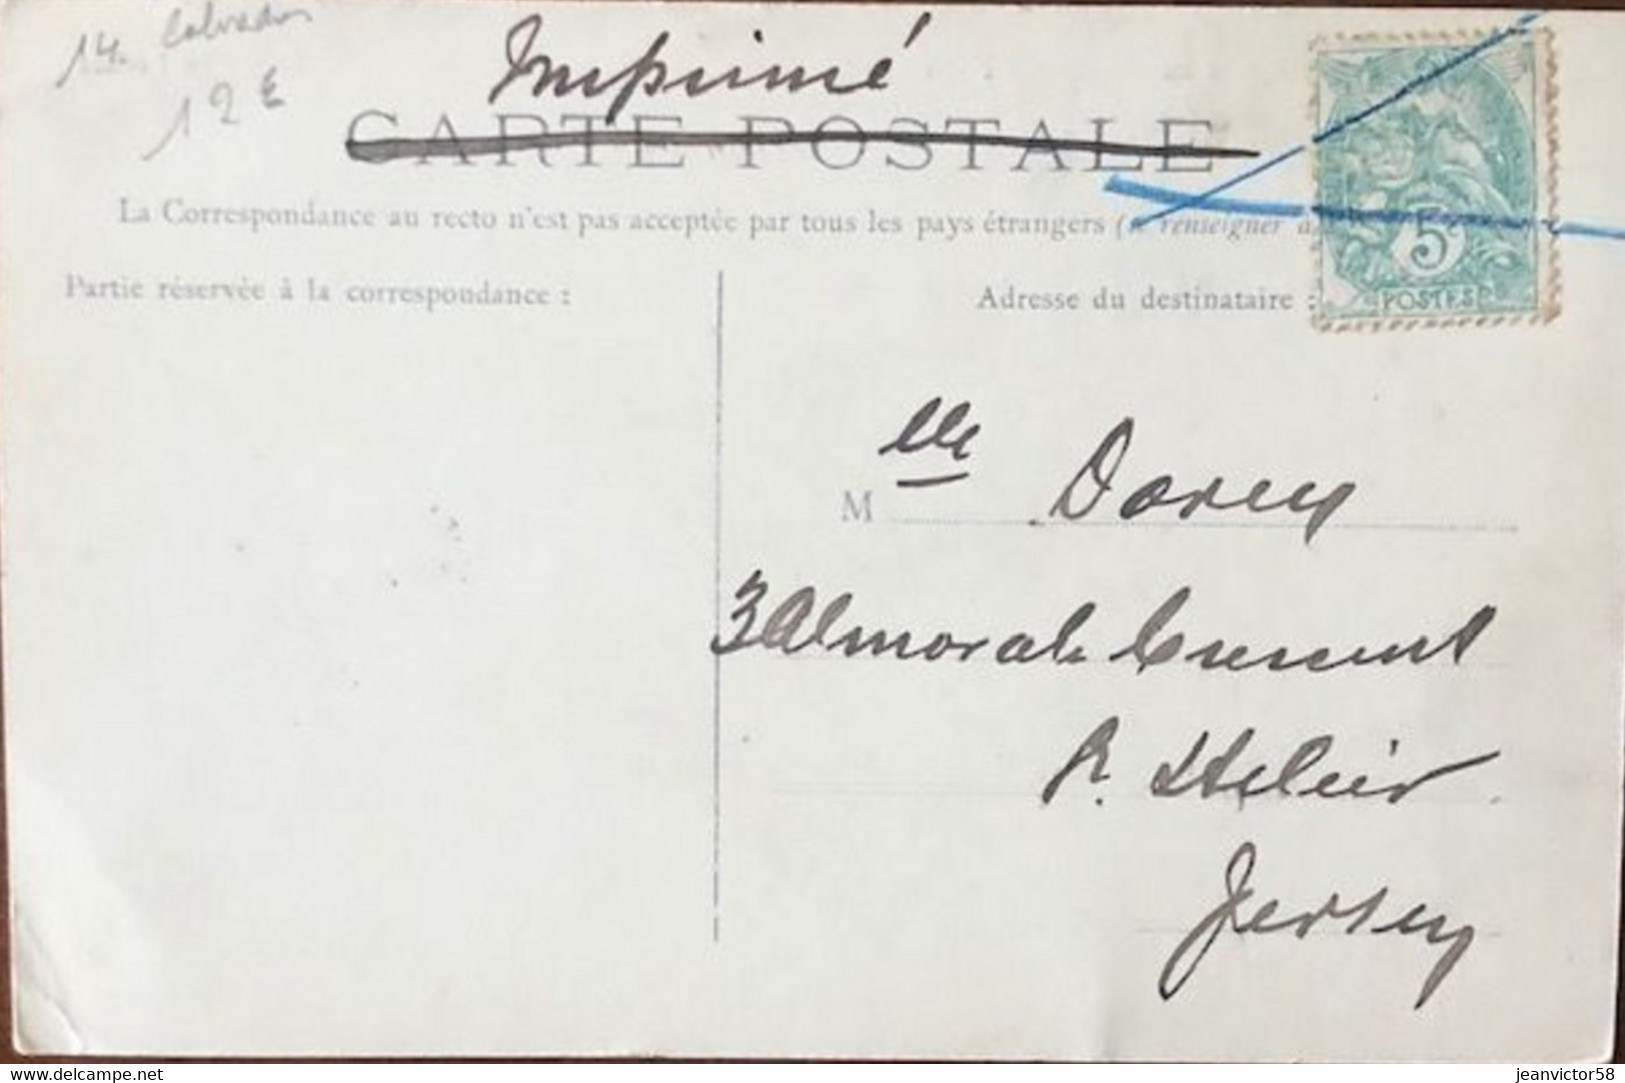 14. Calvados
12 €
Imprimé
CARTE POSTALE
La Correspondance au recto n'est pas acceptée par tous les pays étrangers (renseigner
Partie réservée à la correspondance :
Adresse du destinataire :
5c
POSTES
M lle Dorey
3 Almorah Crescent
St. Helier
Jersey
delcampe.net
jeanvictor58